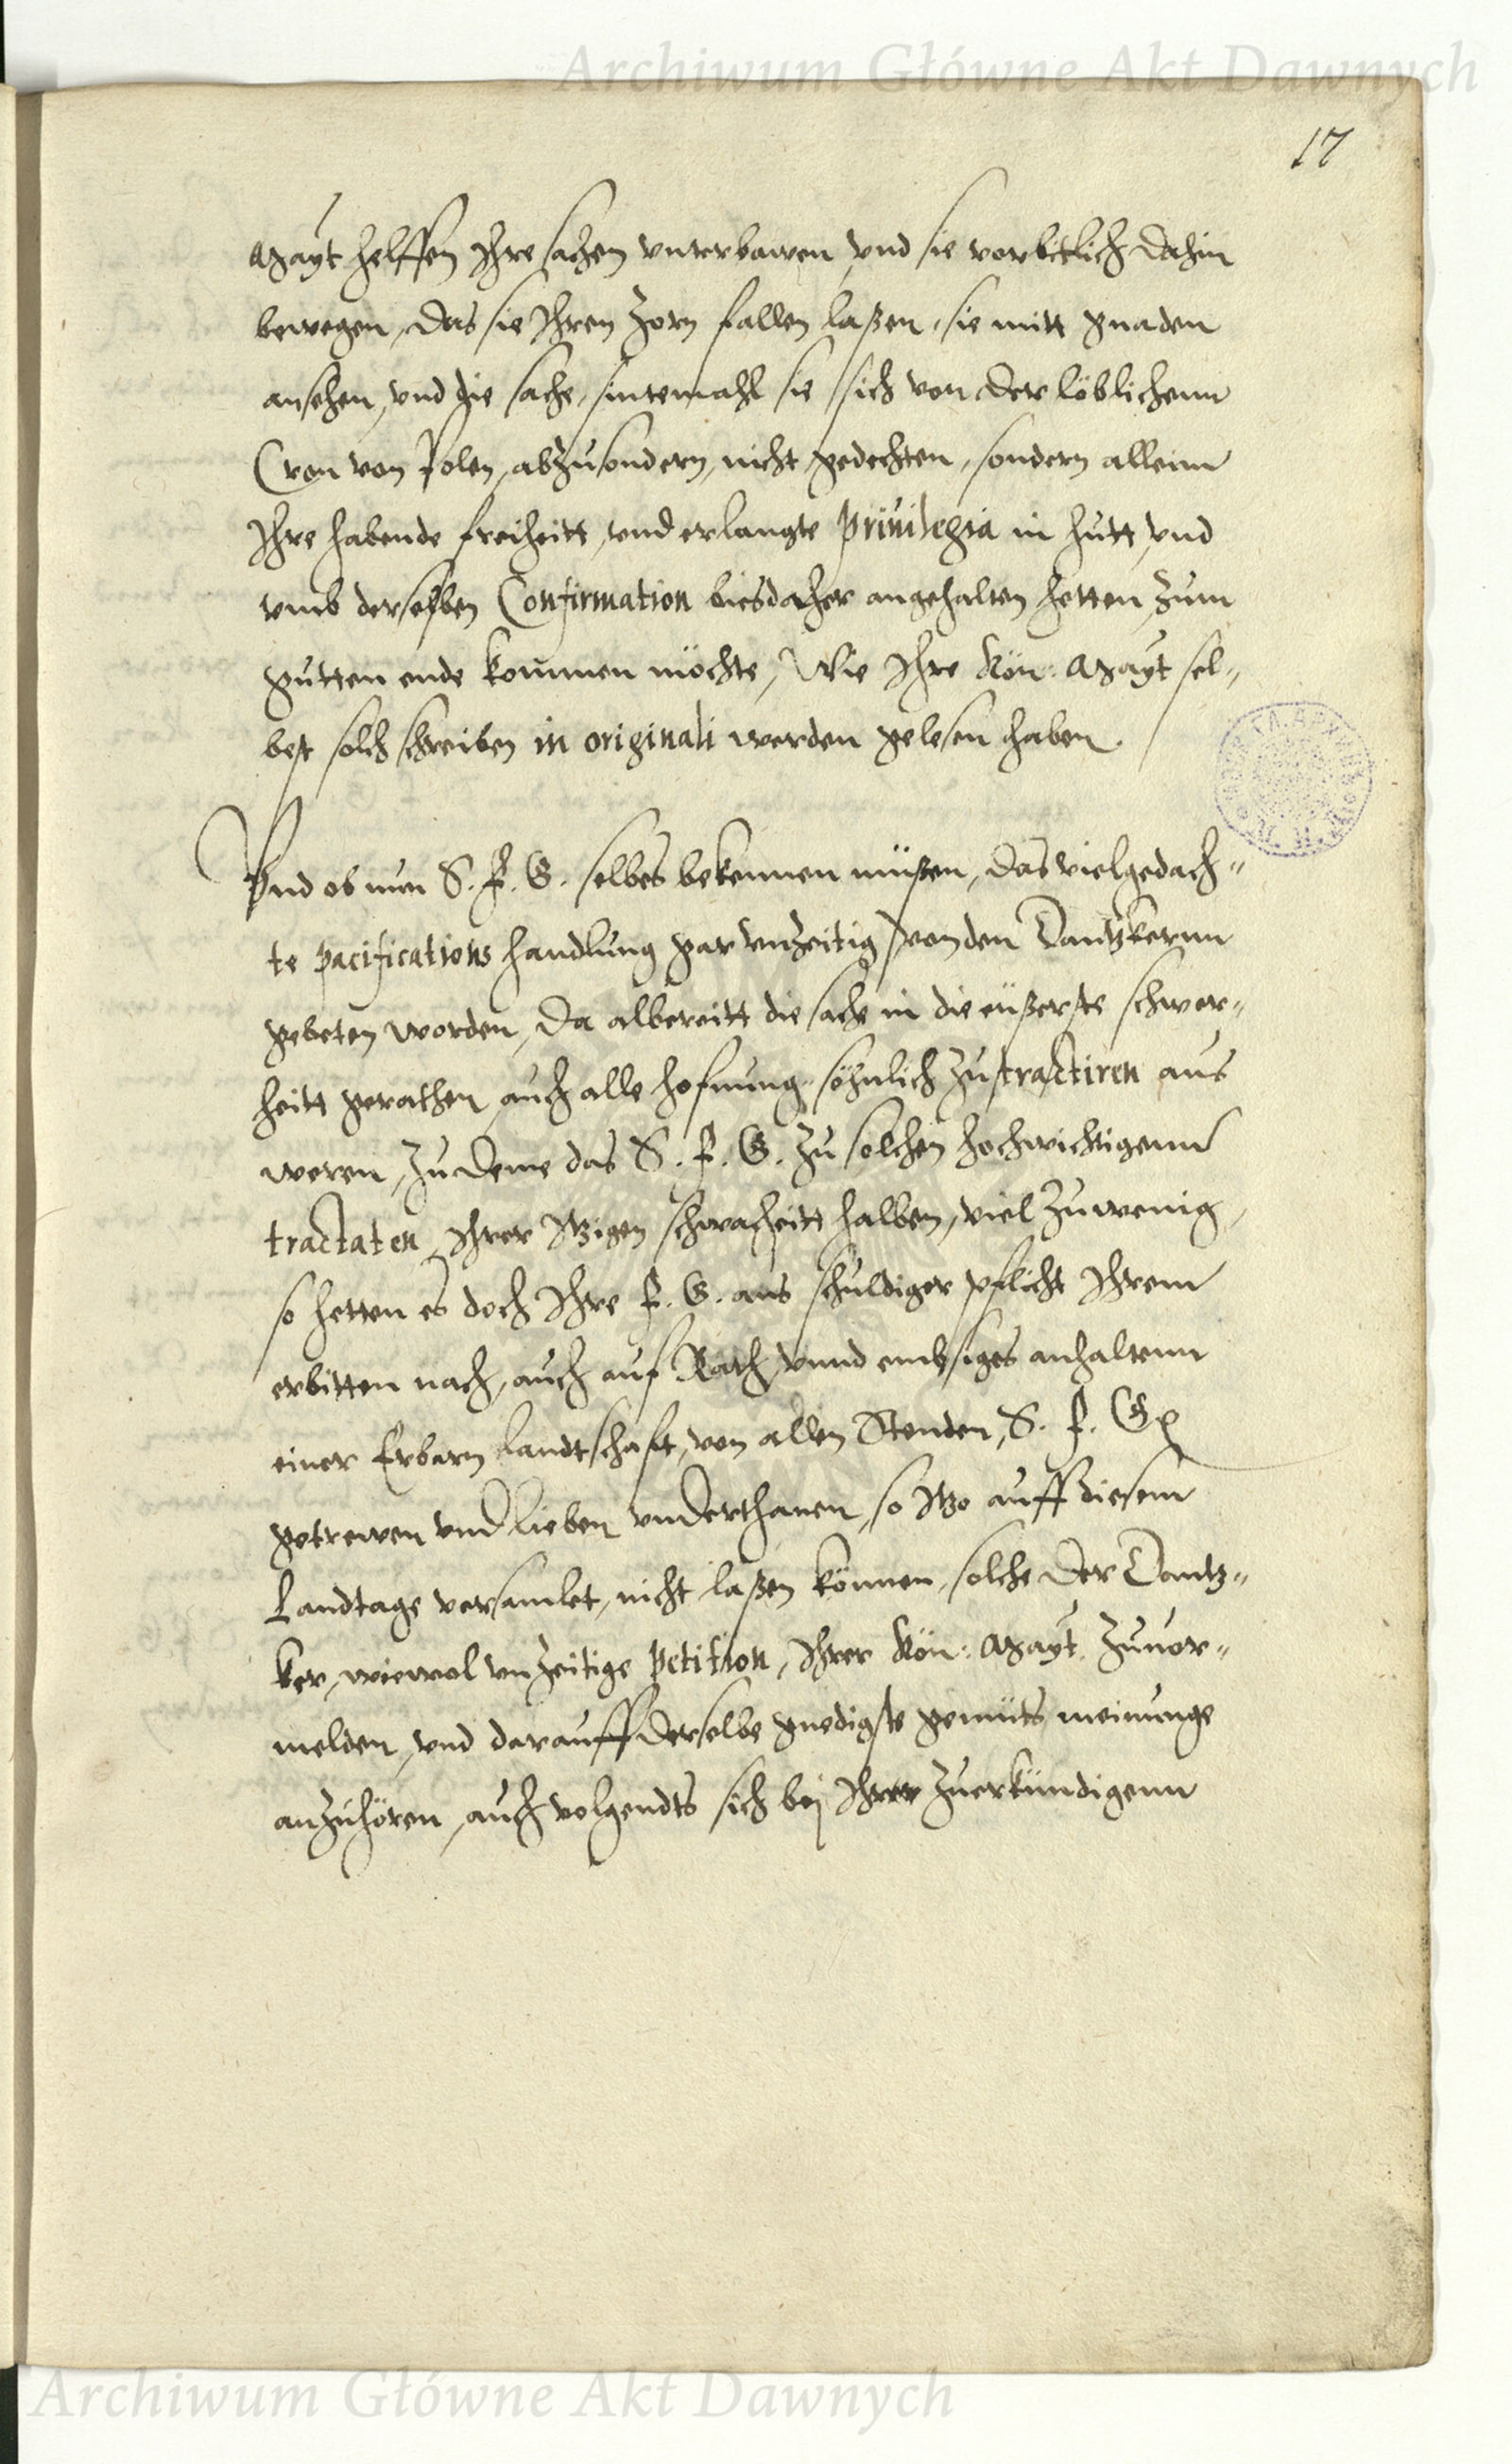 Archiwum Główne Akt Dawnych
17
Mayt helffen Ihre sachen vnterbawen, vnd sie vorbitlich dahin
bewegen, das sie Ihren Zorn fallen laßen, sie mitt gnaden
ansehen, vnd die sache, sintemahl sie sich von der löblichenn
Cron von Polen, abzusondern, nicht gedechten, sondern allein
Ihre habende freiheitt, vnd erlangte Priuilegia in hutt, vnd
vmb derselben Confirmation biesdaher angehalten hetten, Zum
gutten ende kommen möchte, Wie Ihre Kön: Mayt sel„
best solch schreiben in originali werden gelesen haben.
Vnd ob nun S. F. G. selbes bekennen müßen, das vielgedach„
te pacifications handlung gar vnzeitig von den Dantzkernn
gebeten worden, Da albereitt die sache in die eüßerste schwer„
heitt gerathen, auch alle hofnung söhnlich zu tractiren aus
weren, Zu deme das S. F. G. Zu solchen hochwichtigenn
tractaten, Ihrer Itzigen schwacheitt halben, viel Zu wenig,
so hetten es doch Ihre F. G. aus schuldiger pflicht Ihrem
erbitten nach, auch auf Rath, vnnd embsiges anhaltenn
einer Erbarn Landtschafft, von allen Stenden, S. F. G.
getrewen vnd lieben vnderthanen, so Itzo auff diesem
Landtage versamlet, nicht laßen können, solche der Dantz„
ker, wiewol vnzeitige Petition, Ihrer Kön: Mayt. Zuuor„
melden, vnd darauff derselbe gnedigste gemüts meinunge
anzuhören, auch volgendts sich bej Ihrer Zuerkündigenn
Archiwum Główne Akt Dawnych